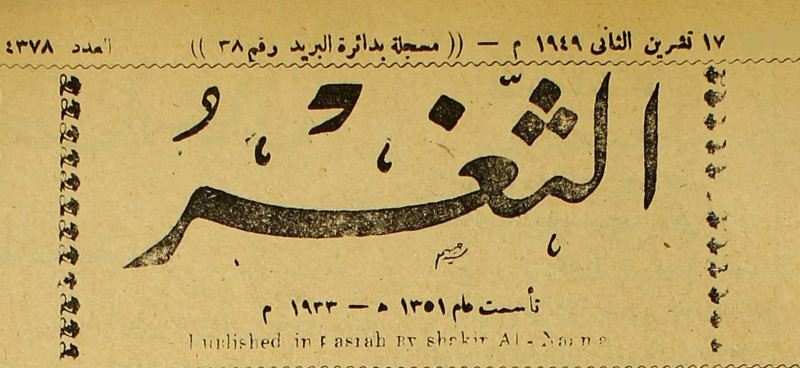 ١٧ تشرين الثانى ١٩٤٩ م — (( مسجلة بدائرة البريد رقم ٣٨ )) العدد ٤٣٧٨
الثَّغْرُ
تأسست عام ١٣٥١ ه — ١٩٣٣ م
Published in Basrah By shakir Al -